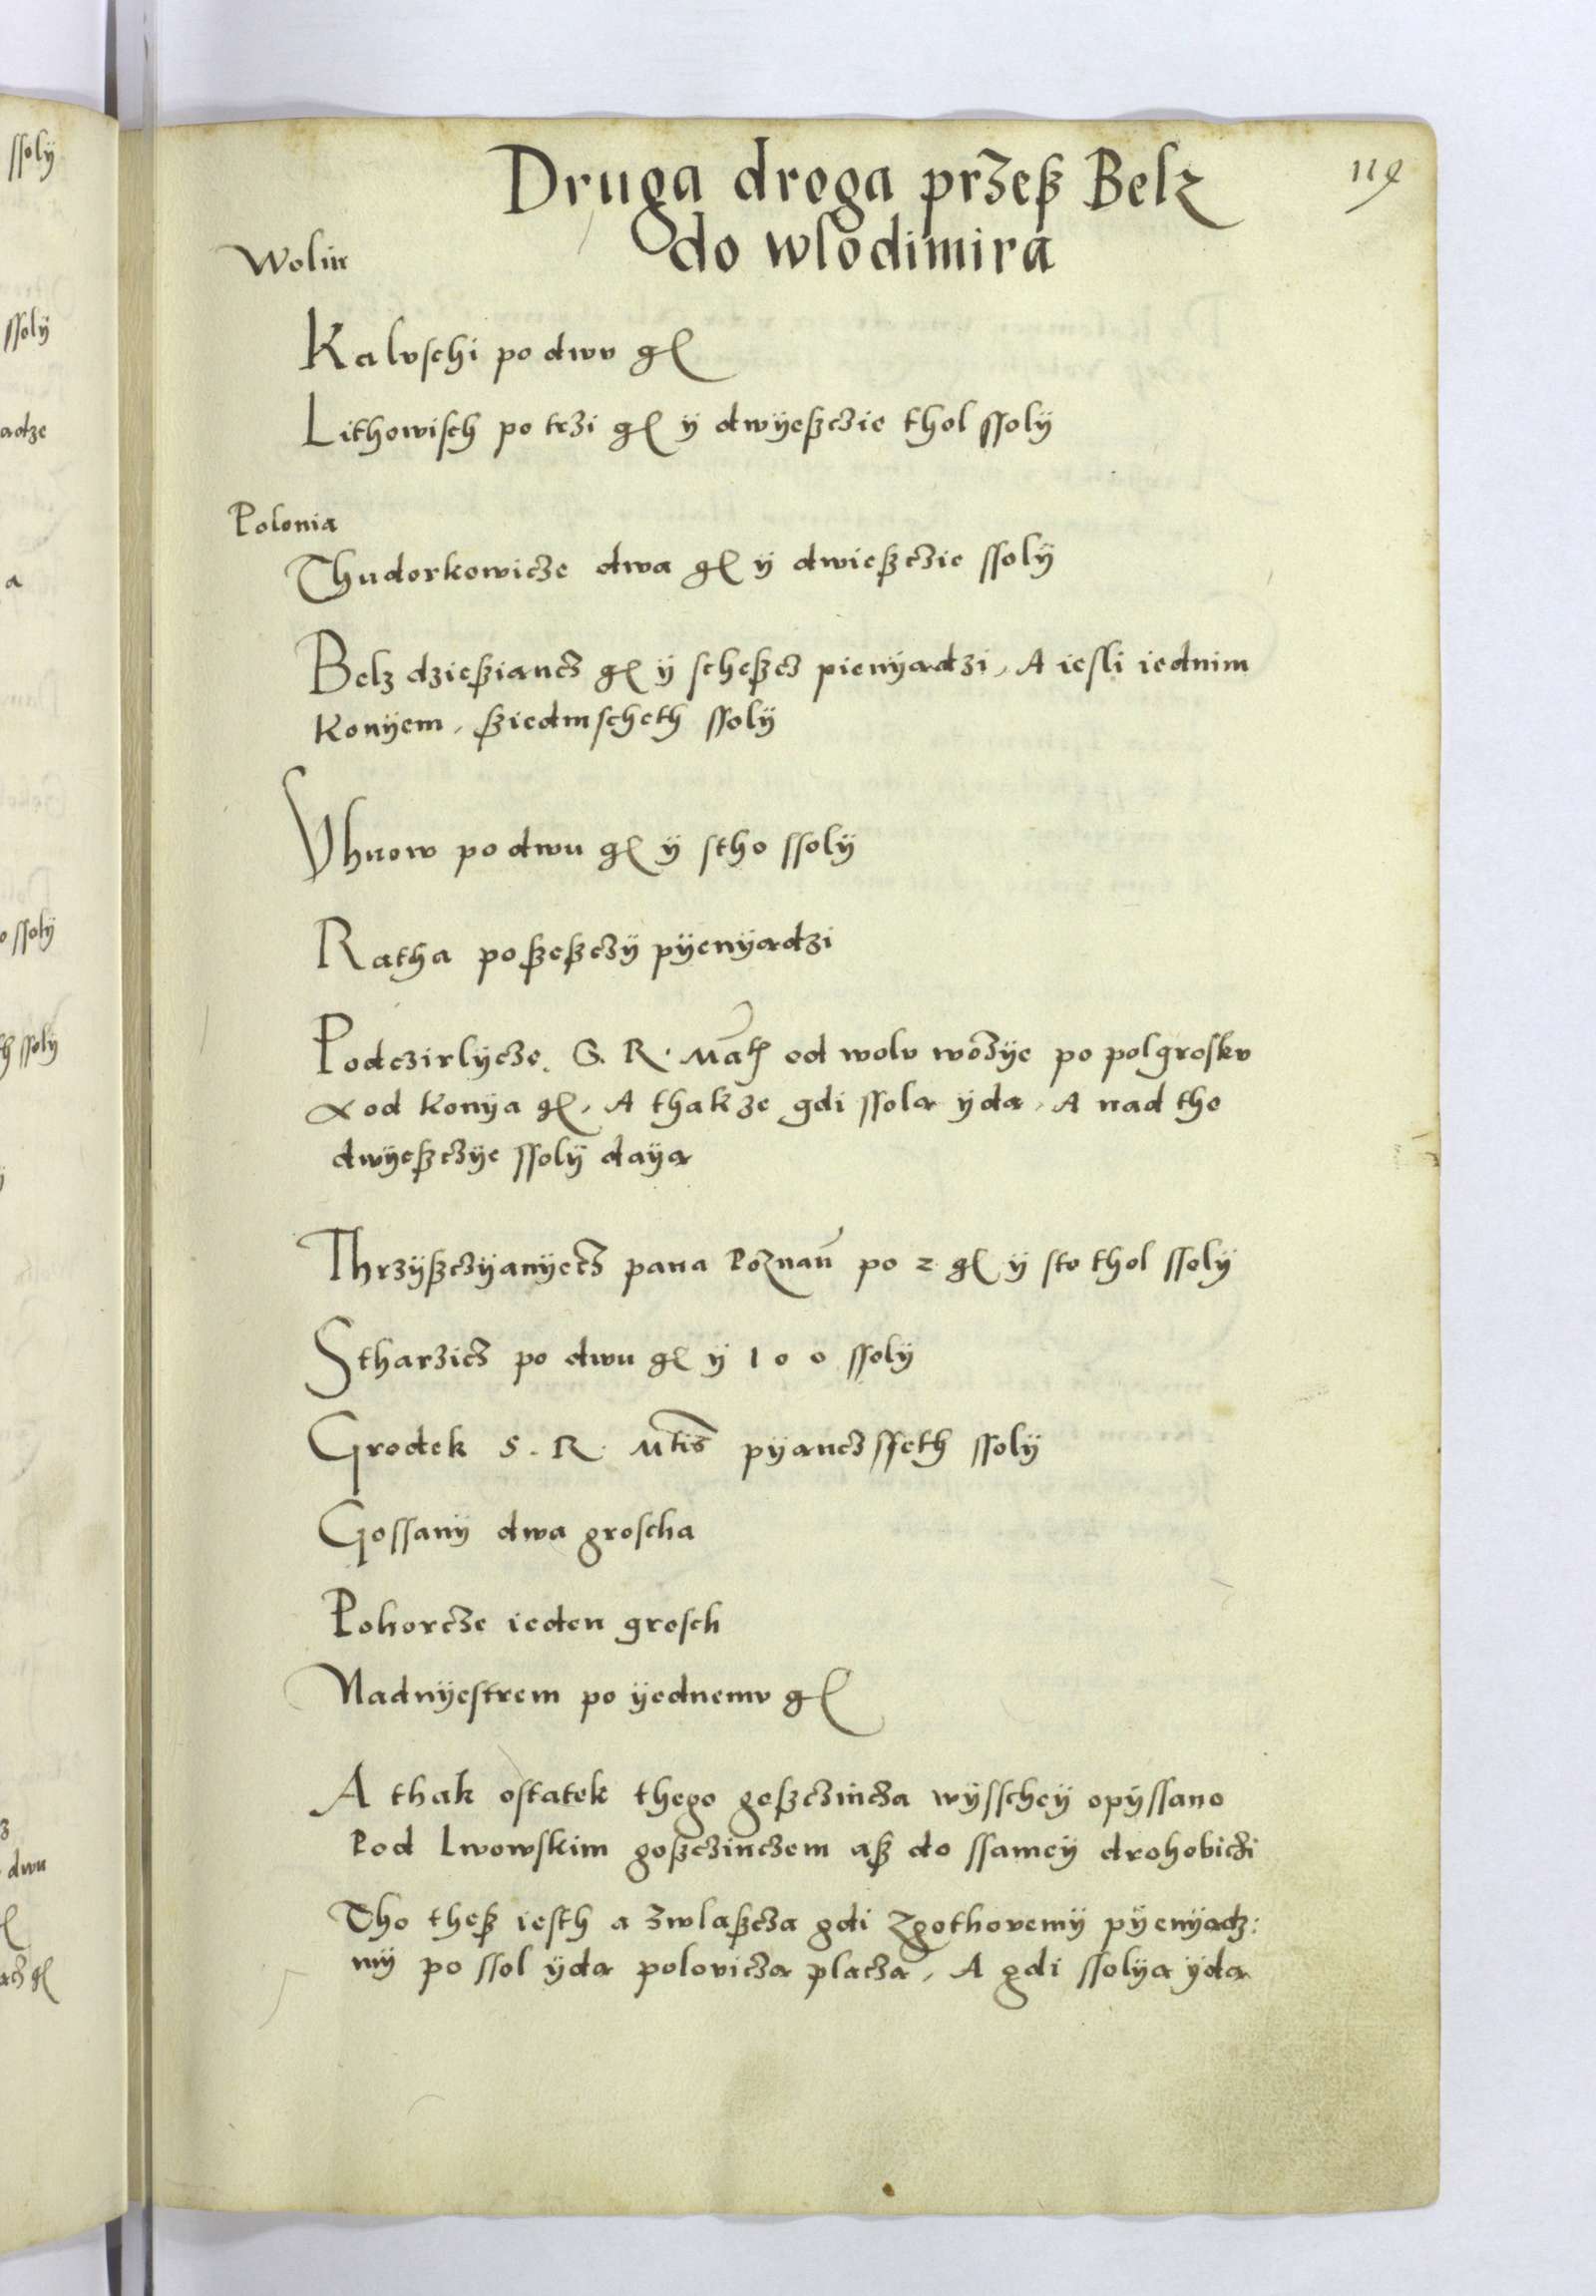 Druga droga przeß Belz
119
do wlodimira
Wolin
Kalvschi po dwv gl
Lithowisch po trzi gl ÿ dwÿeßczie thol ssolÿ
Polonia
Thudorkowicze dwa gl ÿ dwießczie ssolÿ
Belz dzießiancz gl ÿ scheßcz pienÿadzi, A iesli iednim
konÿem, ßiedmscheth ssolÿ
Vhnow po dwu gl ÿ stho ssolÿ
Ratha po ßeßczÿ pÿenÿadzi
Podczirlÿcze S. R. Math od wolv wozÿe po polgroskv
od konÿa gl, A thakze gdi ssola ÿda, A nad tho
dwÿeßczÿe ssolÿ daÿa
Thrzÿßczÿanÿecz pana Poznan po 2 gl ÿ sto thol ssolÿ
Stharzicz po dwu gl ÿ 100 ssolÿ
Grodek S. R. Mtis pÿancz sseth ssolÿ
Gossanÿ dwa groscha
Pohorcze ieden grosch
Nadnÿestrem po ÿednemv gl
A thak ostatek thego goßczincza wÿsscheÿ opÿssano
Pod Lwowskim goßczinczem aß do ssameÿ drohobiczi
Tho theß iesth a zwlaßcza gdi Zgothovemÿ pÿenÿadz:
mÿ po ssol ÿda polovicza placza, A gdi ssolÿa ÿda